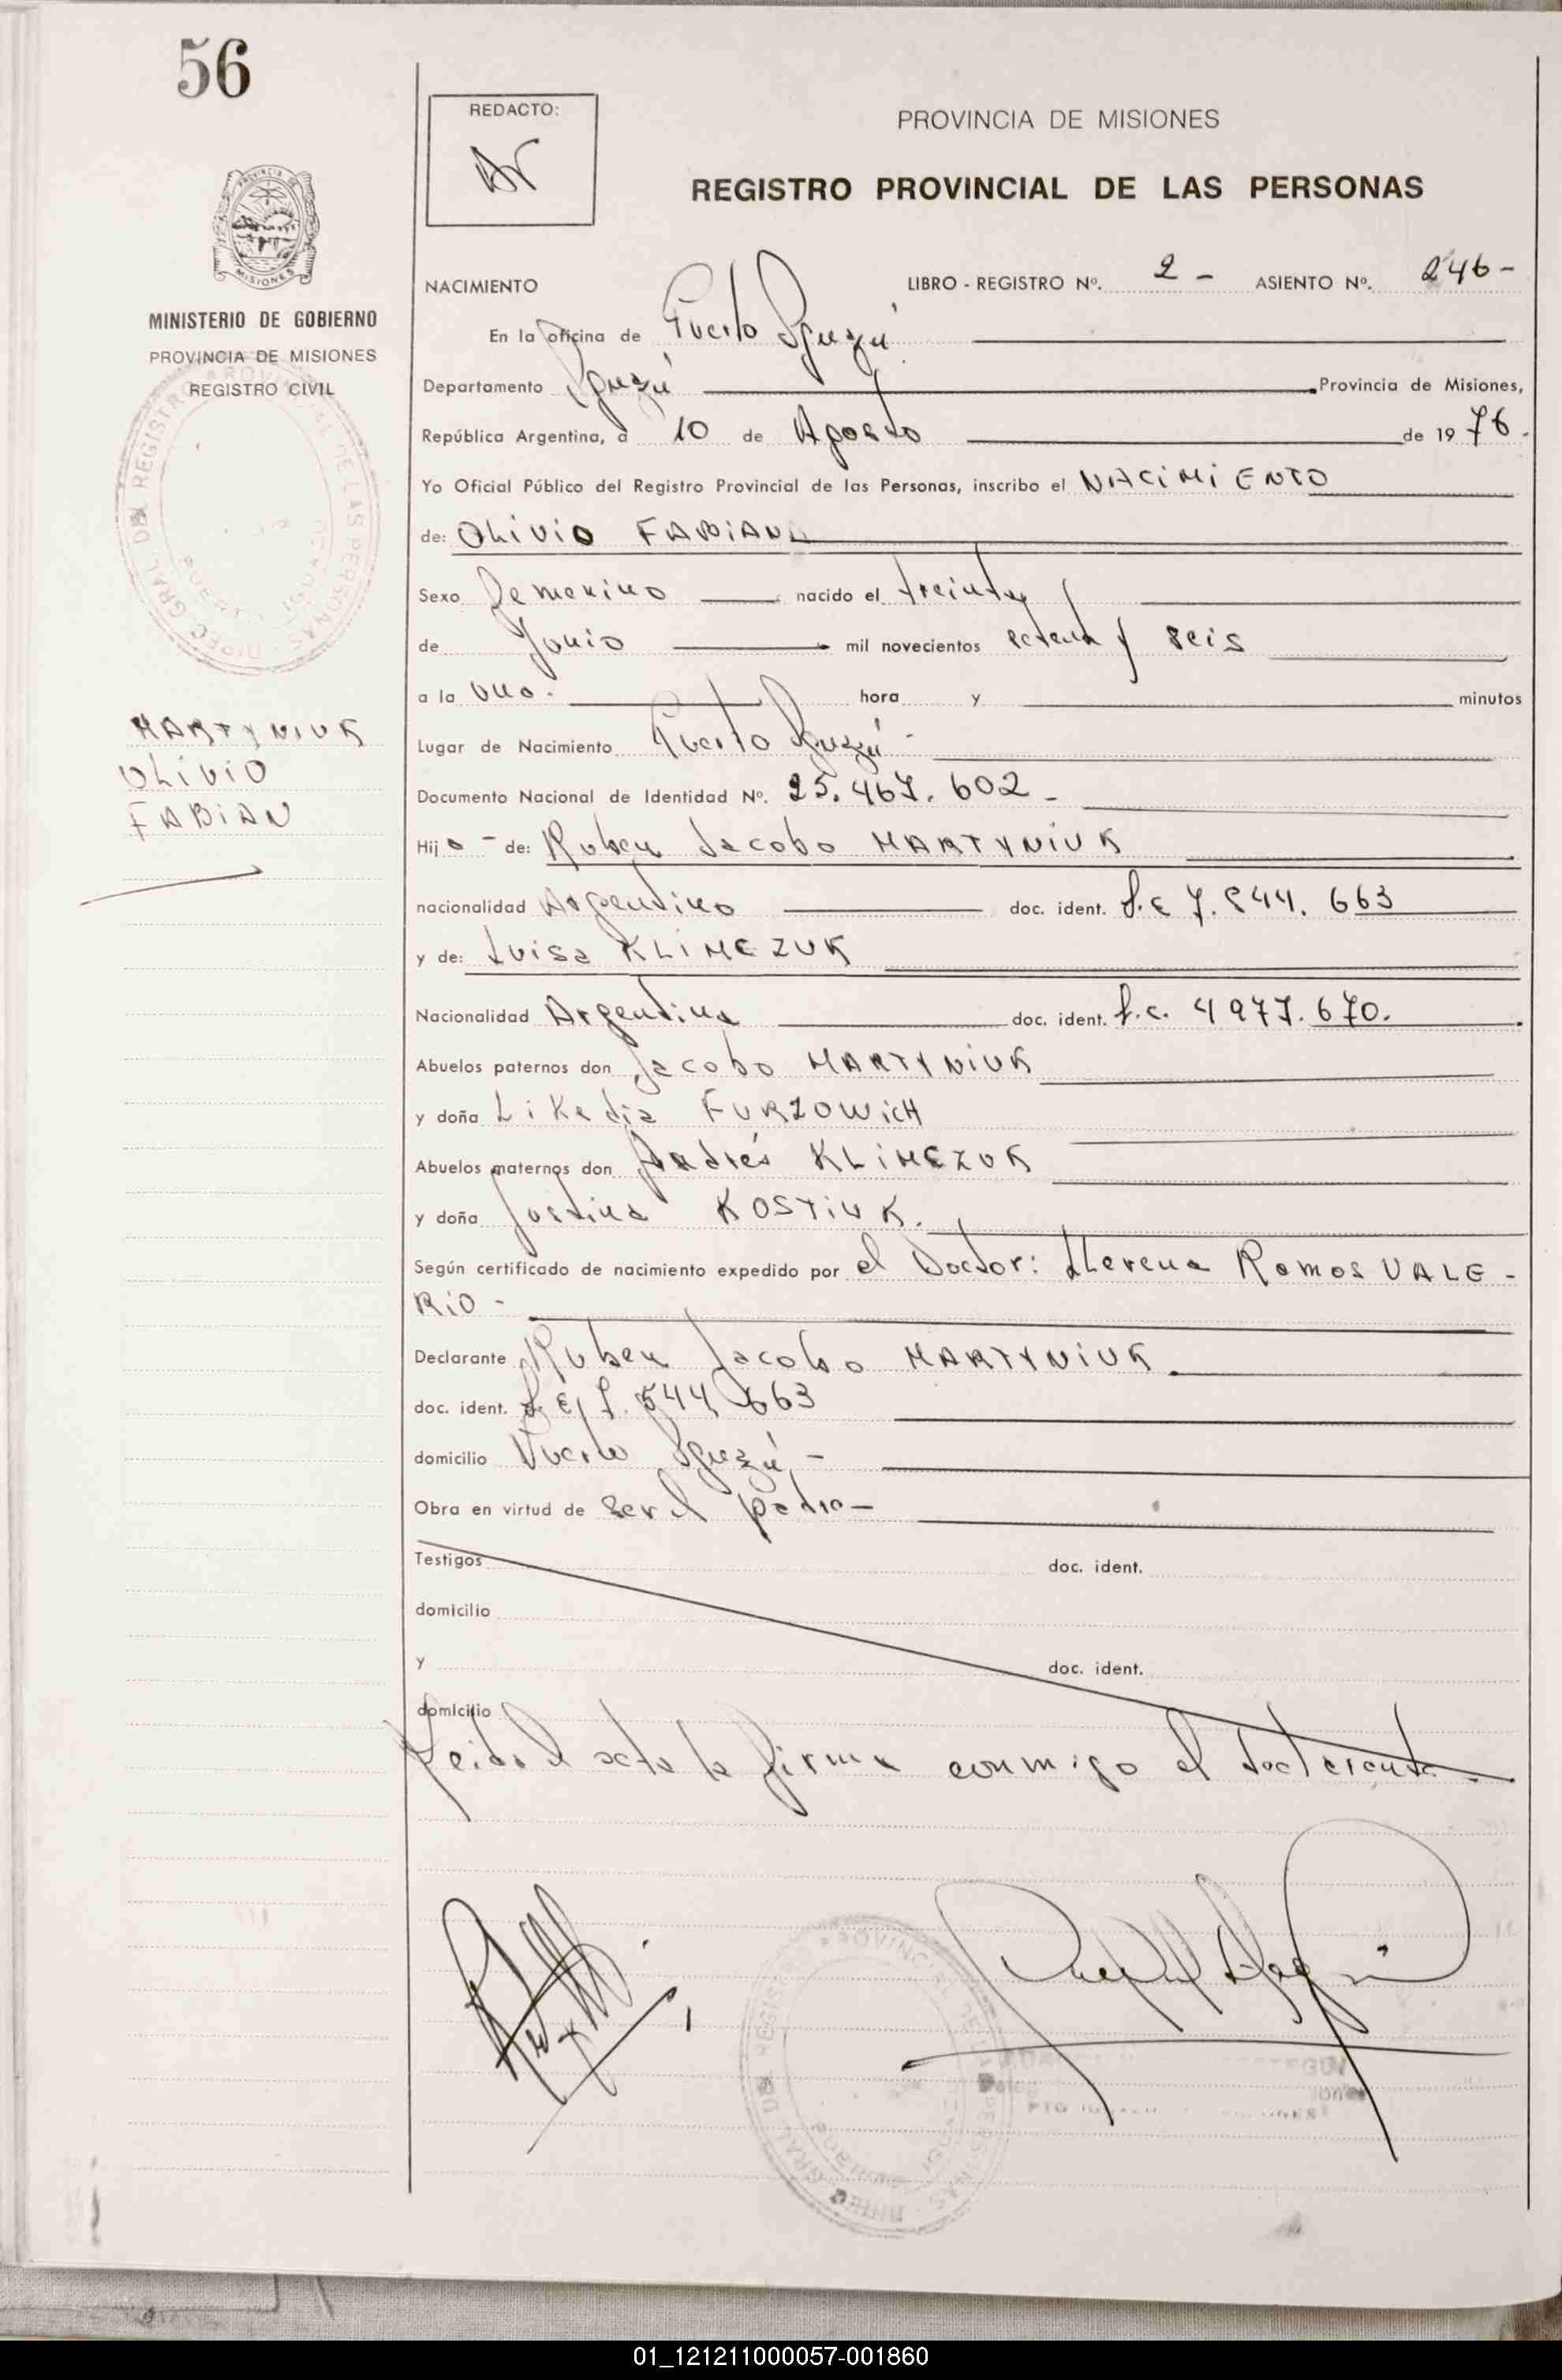 56
REDACTO:
PROVINCIA DE MISIONES
REGISTRO PROVINCIAL DE LAS PERSONAS
MINISTERIO DE GOBIERNO
PROVINCIA DE MISIONES
REGISTRO CIVIL
MARTYNIUK
OLIVIO
FABIAN
NACIMIENTO LIBRO - REGISTRO Nº. 2 - ASIENTO Nº. 246 -
En la oficina de Puerto Iguazú
Departamento Iguazú Provincia de Misiones,
República Argentina, a 10 de Agosto de 1976.
Yo Oficial Público del Registro Provincial de las Personas, inscribo el NACIMIENTO
de: OLIVIO FABIAN
Sexo Femenino nacido el treinta
de Junio mil novecientos setenta y seis
a la Uno. hora y minutos
Lugar de Nacimiento Puerto Iguazú -
Documento Nacional de Identidad Nº. 25.467.602 -
Hijo - de: Ruben Jacobo MARTYNIUK
nacionalidad Argentino doc. ident. L.E 7.544.663
y de: Luisa KLIMCZUK
Nacionalidad Argentina doc. ident. L.C. 4977.670.
Abuelos paternos don Jacobo MARTYNIUK
y doña Likedia FURZOWICH
Abuelos maternos don Andrés KLIMCZUK
y doña Justina KOSTIUK.
Según certificado de nacimiento expedido por el Doctor: Llerena Ramos VALE -
RIO -
Declarante Ruben Jacobo MARTYNIUK
doc. ident. L.E 7.544.663
domicilio Puerto Iguazú -
Obra en virtud de ser el padre -
Testigos doc. ident.
domicilio
y doc. ident.
domicilio
Leida el acta la firma conmigo el declarante
DIREC GRAL DEL REGISTRO PROVINCIAL DE LAS PERSONAS
PUERTO IGUAZU
01_121211000057-001860